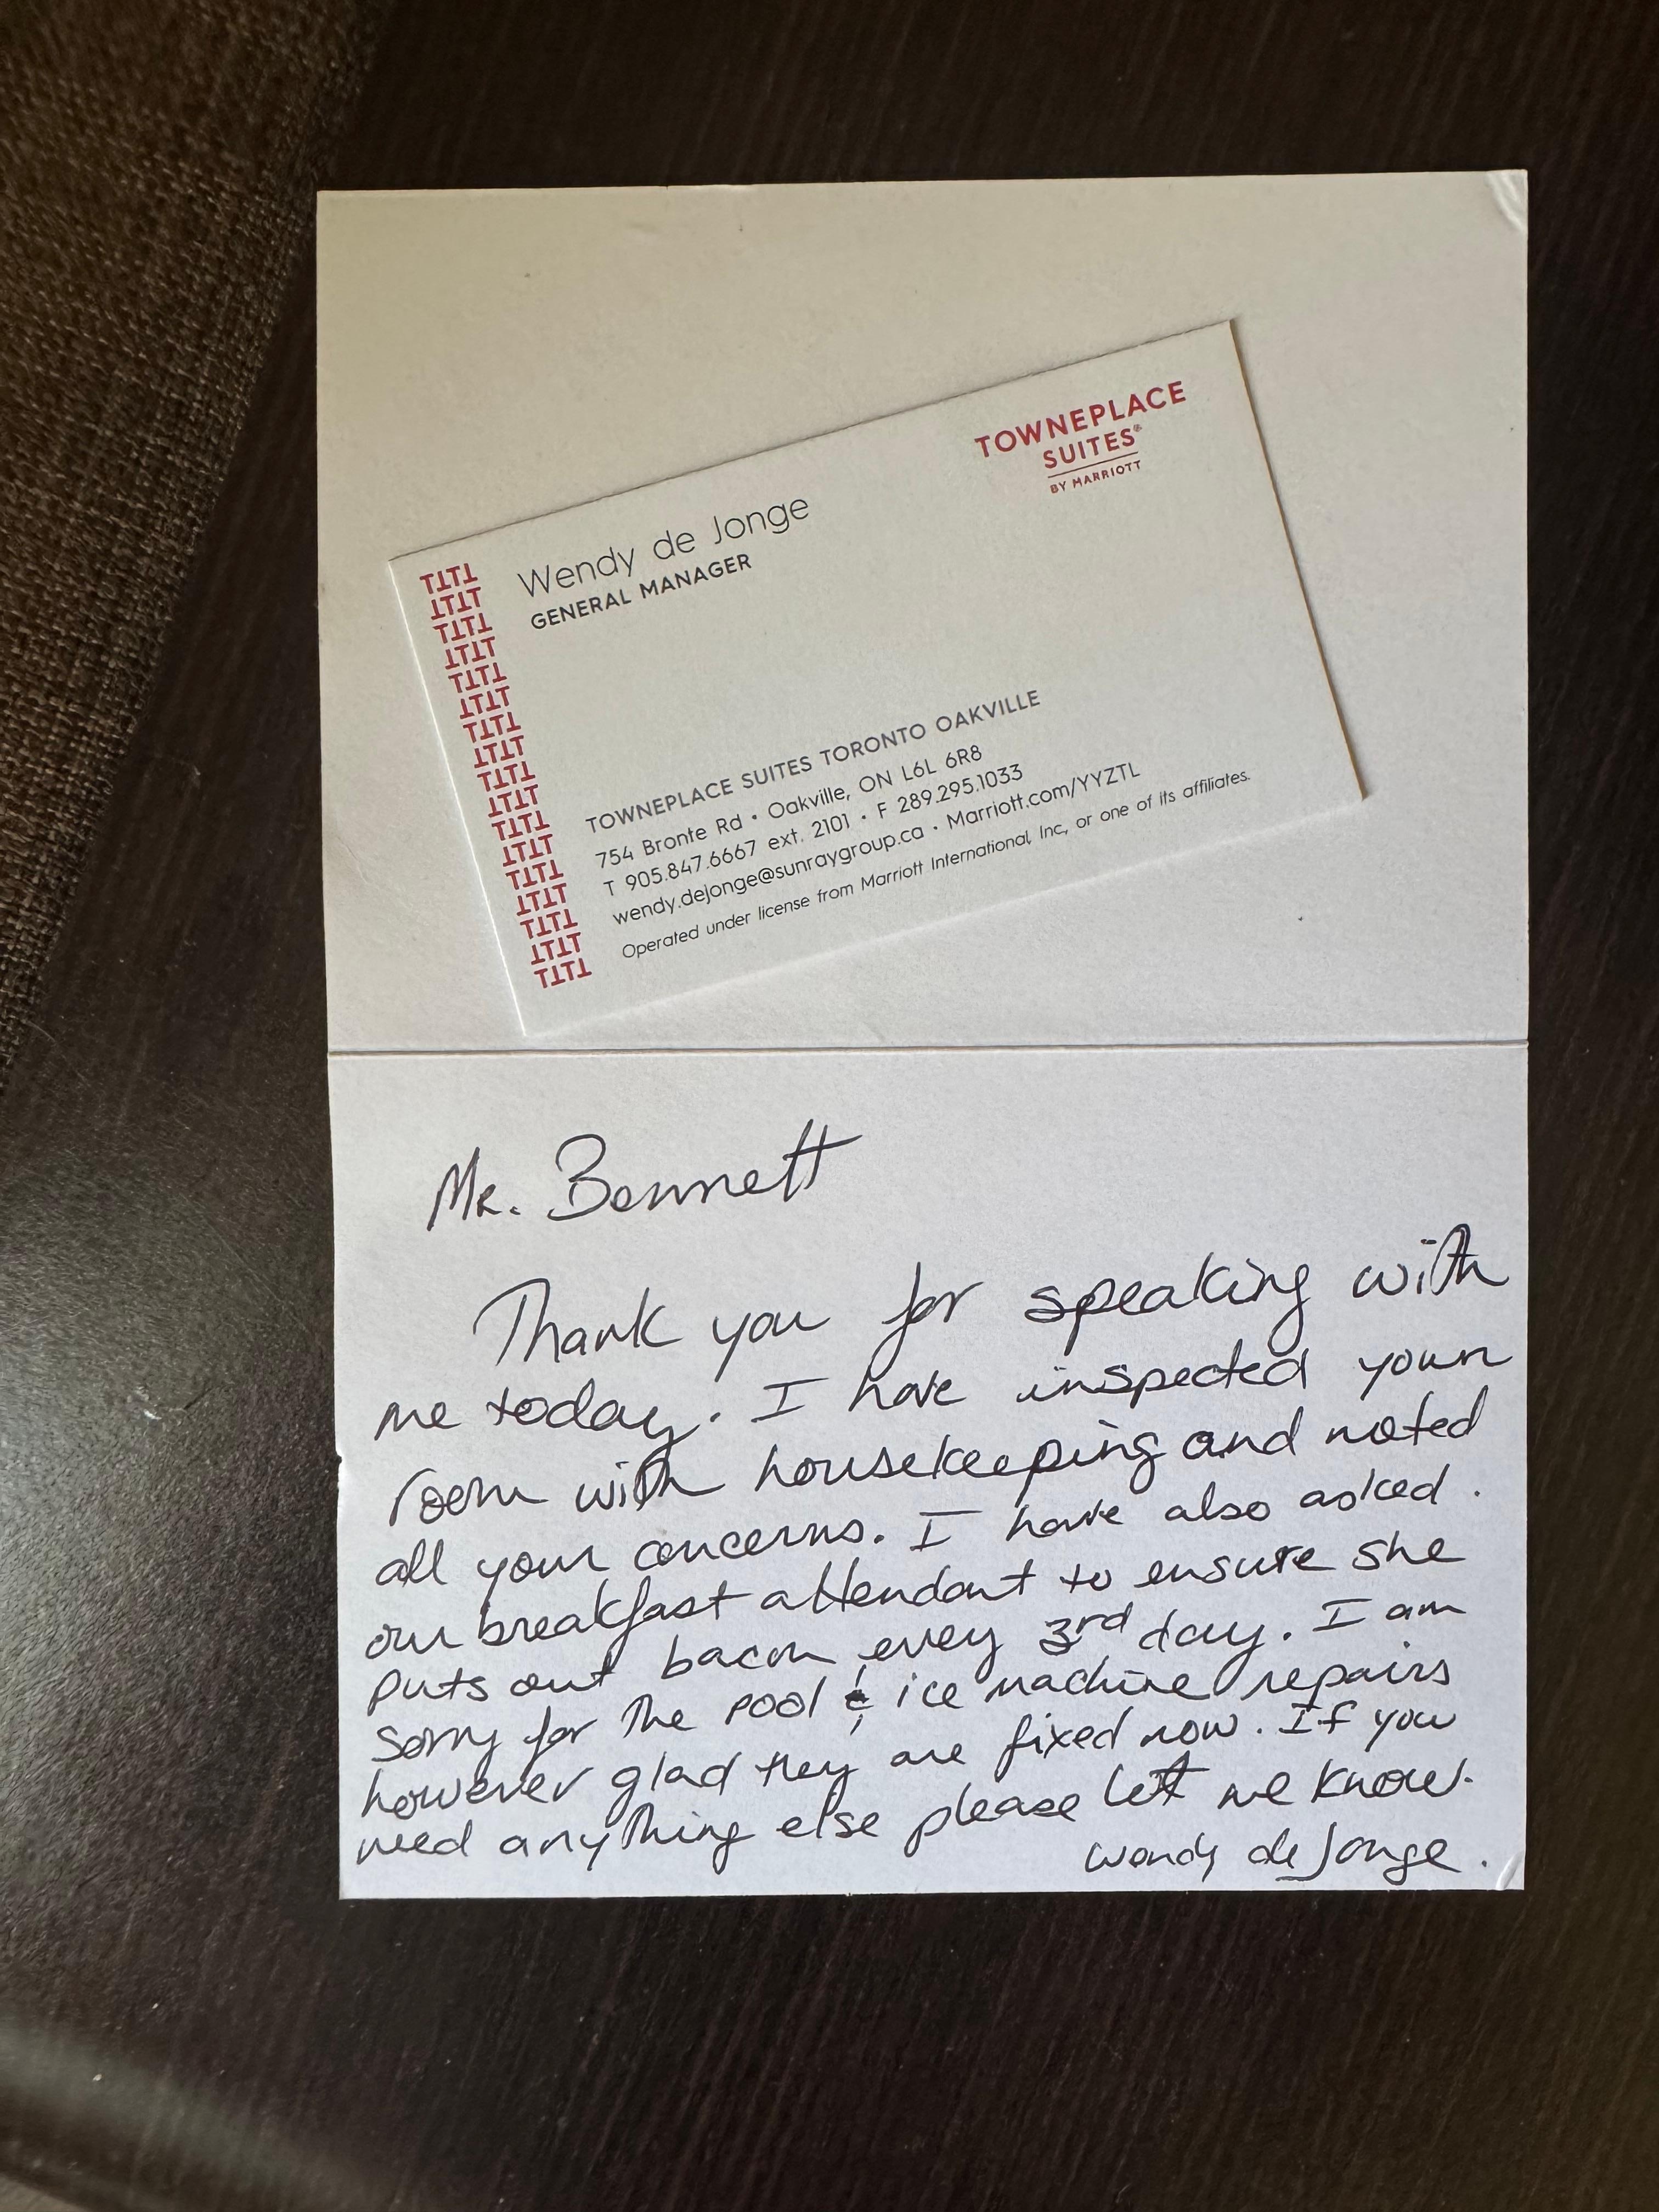 TOWNEPLACE
SUITES®
BY MARRIOTT
Wendy de Jonge
GENERAL MANAGER
TOWNEPLACE SUITES TORONTO OAKVILLE
754 Bronte Rd • Oakville, ON L6L 6R8
T 905.847.6667 ext. 2101 • F 289.295.1033
wendy.dejonge@sunraygroup.ca • Marriott.com/YYZTL
Operated under license from Marriott International, Inc., or one of its affiliates.
Mr. Bennett
Thank you for speaking with
me today. I have inspected your
room with housekeeping and noted
all your concerns. I have also asked
our breakfast attendant to ensure she
puts out bacon every 3rd day. I am
sorry for the pool & ice machine repairs
however glad they are fixed now. If you
need anything else please let me know.
Wendy de Jonge.